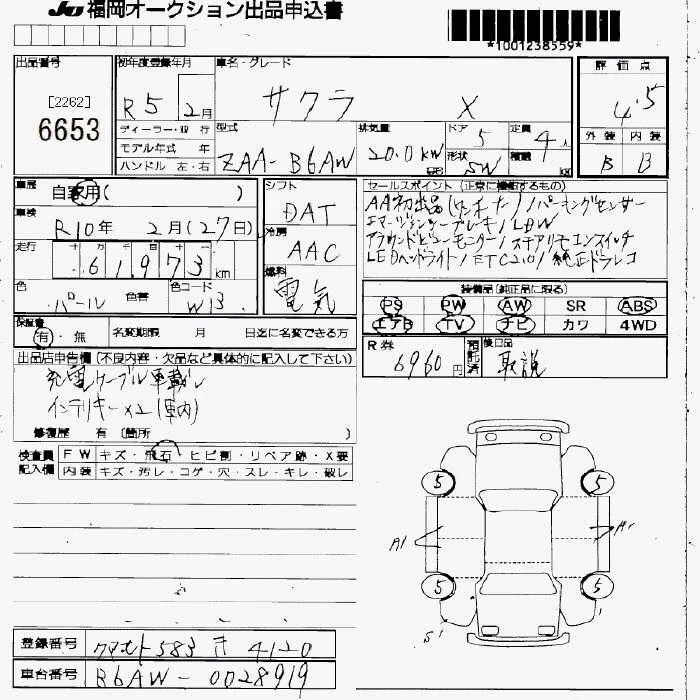 JU 福岡オークション出品申込書
*1001238559*
出品番号
[2262]
6653
初年度登録年月
R5 2月
車名・グレード
サクラ X
評価点
4.5
外装 内装
B B
ディーラー・並行
モデル年式 年
ハンドル 左・右
型式
ZAA-B6AW
排気量
20.0 KW
ドア
5
形状
SW
定員
4人
積載
車歴
自家用( )
車検
R10年 2月(27日)
走行
61,973 km
色
パール
色替
色コード
W13
シフト
DAT
冷房
AAC
燃料
電気
セールスポイント (正常に機能するもの)
AA初出品 / パーキングセンサー
エマージェンシーブレーキ / LDW
アラウンドビューモニター / ステアリモコンスイッチ
LEDヘッドライト / ETC2.0 / 純正ドラレコ
装備品(純正品に限る)
PS PW AW SR ABS
エアB TV ナビ カワ 4WD
保証書
有・無
名変期限 月 日迄に名変できる方
R券
6960円
預託済
後日品
取説
出品店申告欄(不良内容・欠品など具体的に記入して下さい)
充電ケーブル車載
インテリキー×2(車内)
修復歴 有 (箇所 )
検査員
記入欄
FW キズ・飛石・ヒビ割・リペア跡・X要
内装 キズ・汚レ・コゲ・穴・スレ・キレ・破レ
5 5
A1 A1
5 5
S1
登録番号
クマモト 583 き 4120
車台番号
B6AW-0028919